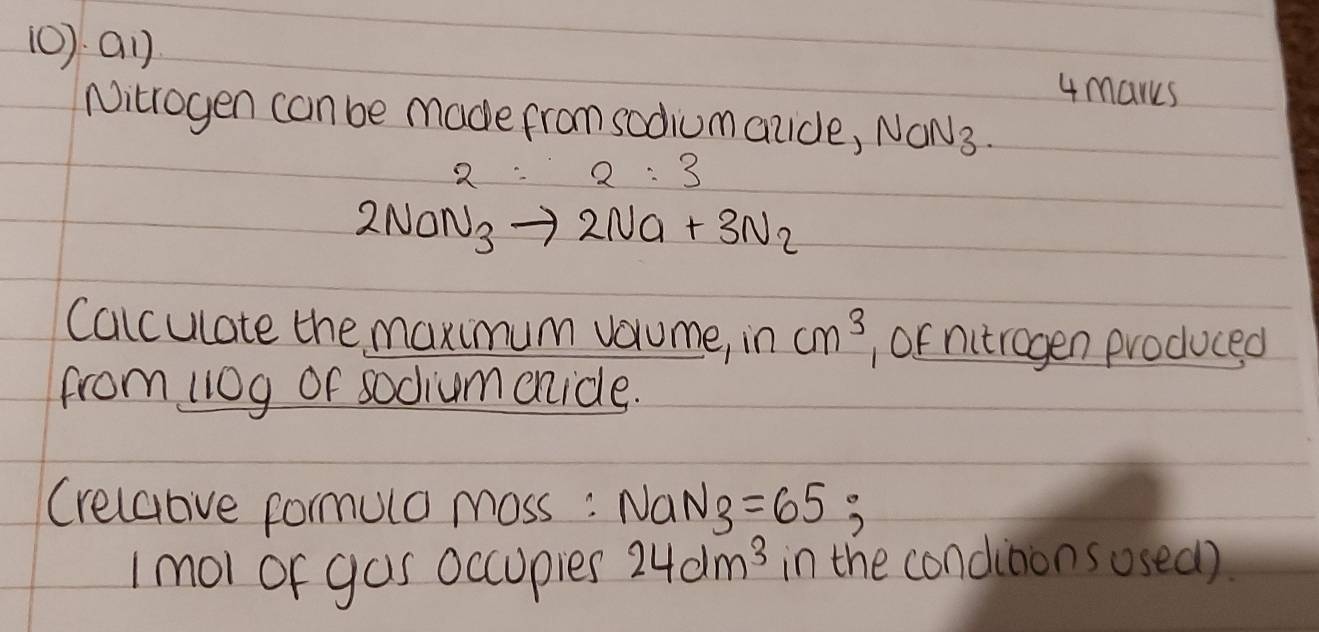 10). ai)
4 marks
Nitrogen can be made from sodium azide, NaN₃.
2 : 2 : 3
2NaN₃ → 2Na + 3N₂
Calculate the maximum volume, in cm³, of nitrogen produced
from 110g of sodium azide.
(relative formula mass : NaN₃ = 65 ;
1 mol of gas occupies 24dm³ in the conditions used).